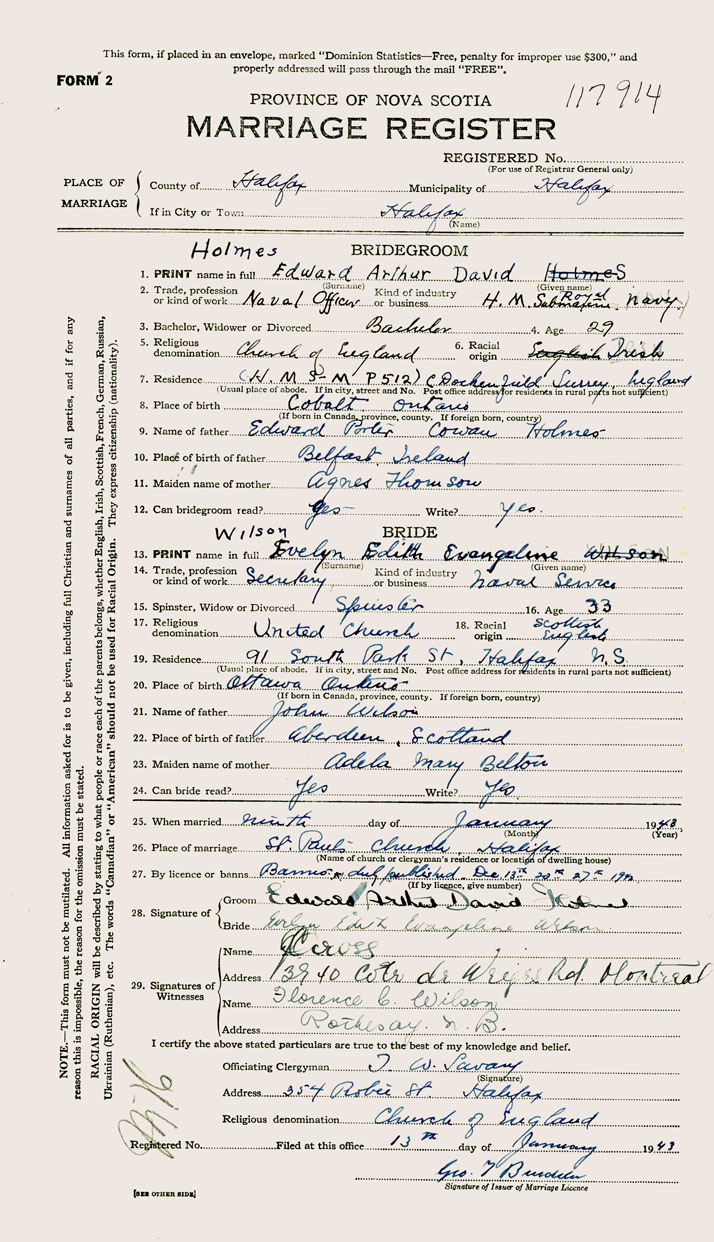 This form, if placed in an envelope, marked "Dominion Statistics—Free, penalty for improper use $300," and
properly addressed will pass through the mail "FREE".
FORM 2
117914
PROVINCE OF NOVA SCOTIA
MARRIAGE REGISTER
REGISTERED No.
(For use of Registrar General only)
PLACE OF MARRIAGE
County of Halifax Municipality of Halifax
If in City or Town Halifax
(Name)
Holmes BRIDEGROOM
1. PRINT name in full Edward Arthur David Holmes
(Surname) (Given name)
2. Trade, profession or kind of work Naval Officer Kind of industry or business H. M. Submarine Royal Navy
3. Bachelor, Widower or Divorced Bachelor 4. Age 29
5. Religious denomination Church of England 6. Racial origin English Irish
7. Residence (H. M. S-M P512) (Dockenfield Surrey, England
(Usual place of abode. If in city, street and No. Post office address for residents in rural parts not sufficient)
8. Place of birth Cobalt Ontario
(If born in Canada, province, county. If foreign born, country)
9. Name of father Edward Porter Cowan Holmes
10. Place of birth of father Belfast, Ireland
11. Maiden name of mother Agnes Thomson
12. Can bridegroom read? Yes Write? Yes.
Wilson BRIDE
13. PRINT name in full Evelyn Edith Evangeline Wilson
(Surname) (Given name)
14. Trade, profession or kind of work Secretary Kind of industry or business Naval Service
15. Spinster, Widow or Divorced Spinster 16. Age 33
17. Religious denomination United Church 18. Racial origin Scottish English
19. Residence 91 South Park St, Halifax N.S.
(Usual place of abode. If in city, street and No. Post office address for residents in rural parts not sufficient)
20. Place of birth Ottawa Ontario
(If born in Canada, province, county. If foreign born, country)
21. Name of father John Wilson
22. Place of birth of father Aberdeen, Scotland
23. Maiden name of mother Adela Mary Belton
24. Can bride read? Yes Write? Yes.
25. When married ninth day of January 1943
(Month) (Year)
26. Place of marriage St. Paul's Church, Halifax
(Name of church or clergyman's residence or location of dwelling house)
27. By licence or banns Banns duly published Dec 13th 20th 27th 1942
(If by licence, give number)
28. Signature of
Groom Edward Arthur David Holmes
Bride Evelyn Edith Evangeline Wilson
29. Signatures of Witnesses
Name Cross
Address 3940 Cote de Rd. Montreal
Name Florence C. Wilson
Address Rothesay. N. B.
I certify the above stated particulars are true to the best of my knowledge and belief.
Officiating Clergyman T. W. Savary
(Signature)
Address 354 Robie St Halifax
Religious denomination Church of England
Registered No. Filed at this office 13th day of January 1943
Geo. T
Signature of Issuer of Marriage Licence
[SEE OTHER SIDE]
NOTE.—This form must not be mutilated. All information asked for is to be given, including full Christian and surnames of all parties, and if for any
reason this is impossible, the reason for the omission must be stated.
RACIAL ORIGIN will be described by stating to what people or race each of the parents belongs, whether English, Irish, Scottish, French, German, Russian,
Ukrainian (Ruthenian), etc. The words "Canadian" or "American" should not be used for Racial Origin. They express citizenship (nationality).